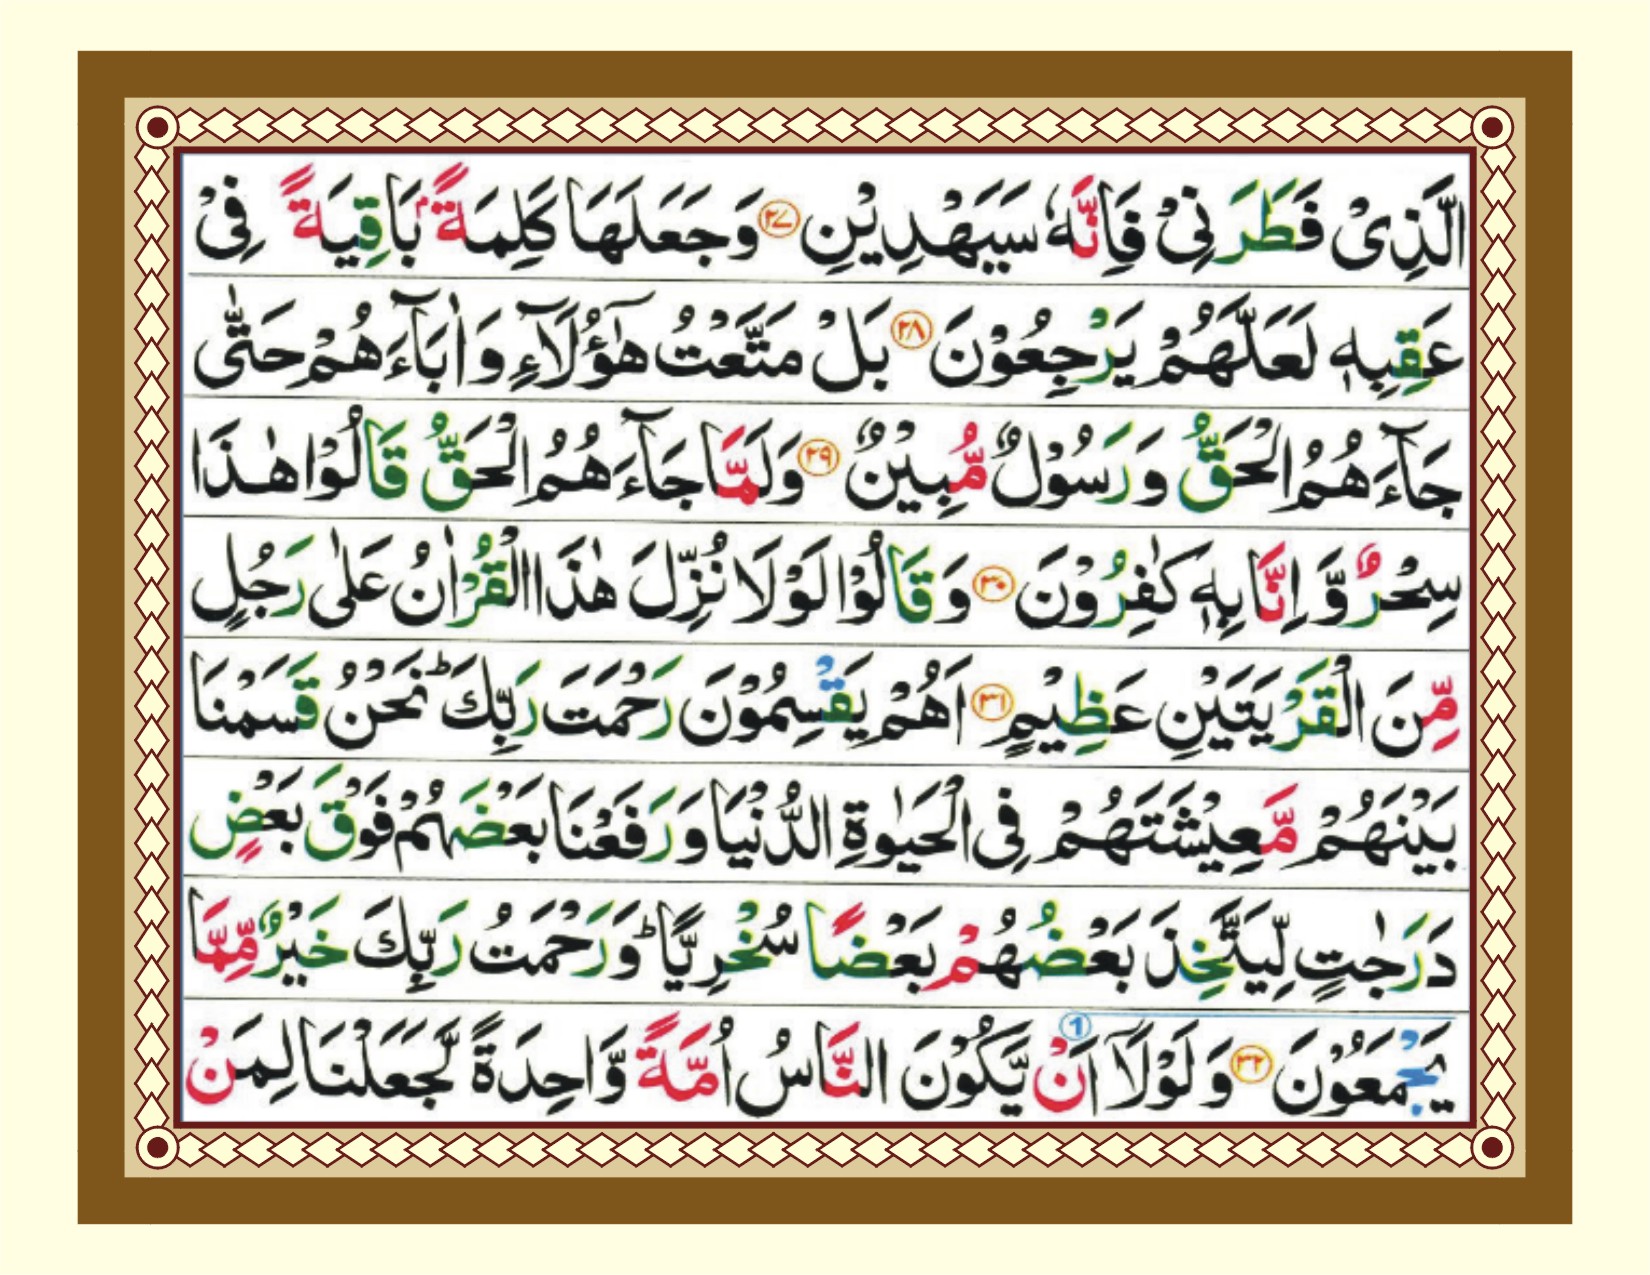 الَّذِیْ فَطَرَ نِیْ فَاِنَّهٗ سَیَهْدِیْنِ ۝۲۷ وَجَعَلَهَا کَلِمَةًۢ بَاقِیَةً فِیْ
عَقِبِهٖ لَعَلَّهُمْ یَرْجِعُوْنَ ۝۲۸ بَلْ مَتَّعْتُ هٰۤؤُلَآءِ وَاٰبَآءَهُمْ حَتّٰی
جَآءَهُمُ الْحَقُّ وَرَسُوْلٌ مُّبِیْنٌ ۝۲۹ وَلَمَّا جَآءَهُمُ الْحَقُّ قَالُوْا هٰذَا
سِحْرٌ وَّاِنَّا بِهٖ کٰفِرُوْنَ ۝۳۰ وَقَالُوْا لَوْلَا نُزِّلَ هٰذَا الْقُرْاٰنُ عَلٰی رَجُلٍ
مِّنَ الْقَرْیَتَیْنِ عَظِیْمٍ ۝۳۱ اَهُمْ یَقْسِمُوْنَ رَحْمَتَ رَبِّكَ ؕ نَحْنُ قَسَمْنَا
بَیْنَهُمْ مَّعِیْشَتَهُمْ فِی الْحَیٰوةِ الدُّنْیَا وَرَفَعْنَا بَعْضَهُمْ فَوْقَ بَعْضٍ
دَرَجٰتٍ لِّیَتَّخِذَ بَعْضُهُمْ بَعْضًا سُخْرِیًّا ؕ وَرَحْمَتُ رَبِّكَ خَیْرٌ مِّمَّا
یَجْمَعُوْنَ ۝۳۲ وَلَوْلَاۤ 1 اَنْ یَّکُوْنَ النَّاسُ اُمَّةً وَّاحِدَةً لَّجَعَلْنَا لِمَنْ